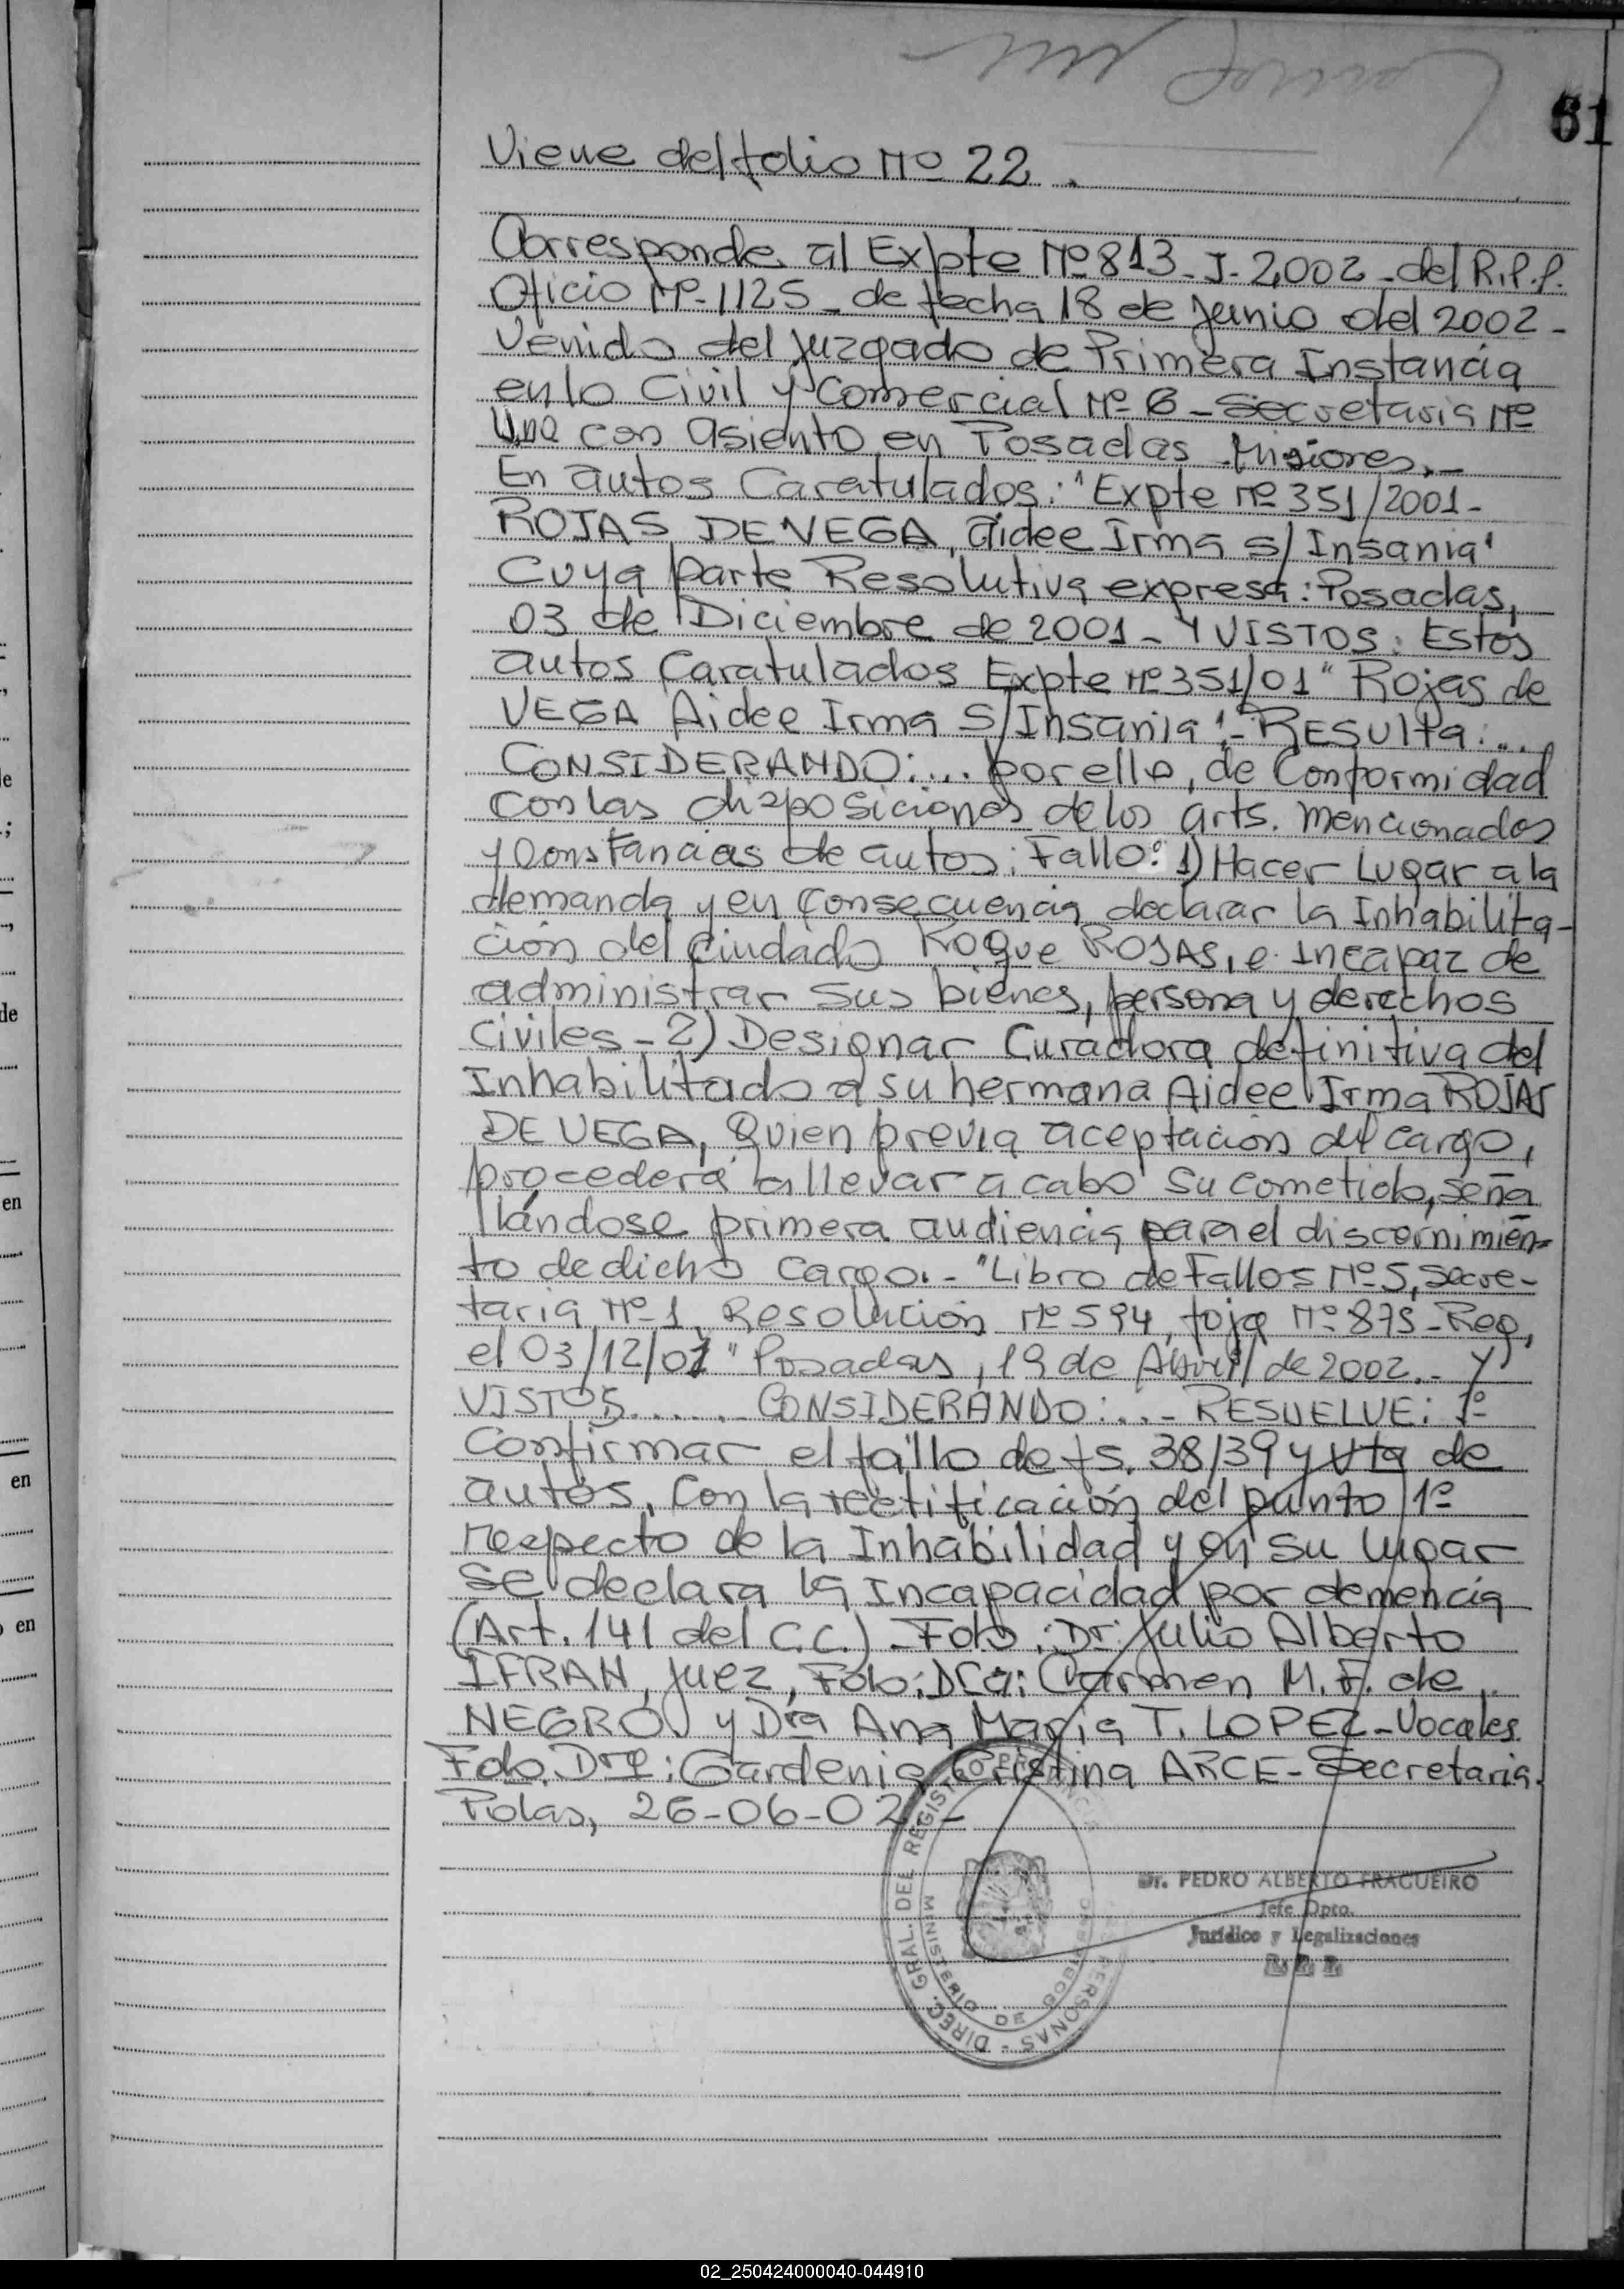 61
Viene del folio Nº 22.
Corresponde al Expte Nº 813-J-2002-del R.P.P.
Oficio Nº-1125-de fecha 18 de Junio del 2002-
Venido del Juzgado de Primera Instancia
en lo Civil y Comercial Nº 6-Secretaria Nº
Uno con asiento en Posadas Misiones.-
En autos Caratulados: "Expte Nº 351/2001-
ROJAS DE VEGA, aidee Irma s/Insania"
Cuya parte Resolutiva expresa: Posadas,
03 de Diciembre de 2001- Y VISTOS: Estos
autos Caratulados Expte Nº 351/01 "Rojas de
VEGA Aidee Irma S/Insania".-RESUlta:...
CONSIDERANDO:... por ello, de Conformidad
con las disposiciones de los arts. mencionados
y Constancias de autos: Fallo: 1) Hacer Lugar a la
demanda y en consecuencia declarar la Inhabilita-
ción del Ciudado Roque ROJAS, e Incapaz de
administrar sus bienes, persona y derechos
civiles-2) Designar Curadora definitiva del
Inhabilitado a su hermana Aidee Irma ROJAS
DE VEGA, Quien previa aceptación del cargo,
procederá a llevar a cabo su cometido, seña
lándose primera audiencia para el discernimien-
to de dicho cargo.-"Libro de Fallos Nº 5, Secre-
taria Nº-1, Resolución Nº 594, foja Nº 875-Reg,
el 03/12/01" Posadas, 19 de Abril de 2002.- Y
VISTOS...... CONSIDERANDO:...- RESUELVE: 1º-
Confirmar el fallo de fs. 38/39 y vta de
autos, Con la rectificación del punto 1º
respecto de la Inhabilidad y en su lugar
se declara la Incapacidad por demencia
(Art. 141 del C.C.)-Fdo: Dr: Julio Alberto
IFRAN, Juez, Fdo: Dra: Carmen M. F. de
NEGRO y Dra Ana Maria T. LOPEZ-Vocales
Fdo. Dra: Gardenia Cristina ARCE-Secretaria.
Pdas, 26-06-02.-
DIREC. GRAL. DEL REGISTRO PROVINCIAL PERSONAS
MINISTERIO DE GOBIERNO
Dr. PEDRO ALBERTO FRAGUEIRO
Jefe Dpto.
Jurídico y Legalizaciones
R. P. P.
de
en
en
en
02_250424000040-044910